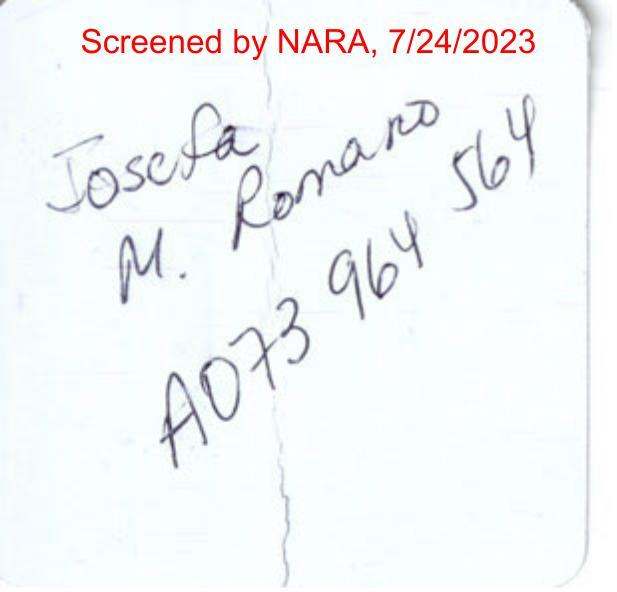 Screened by NARA, 7/24/2023
Josefa
M. Romano
A073 964 564